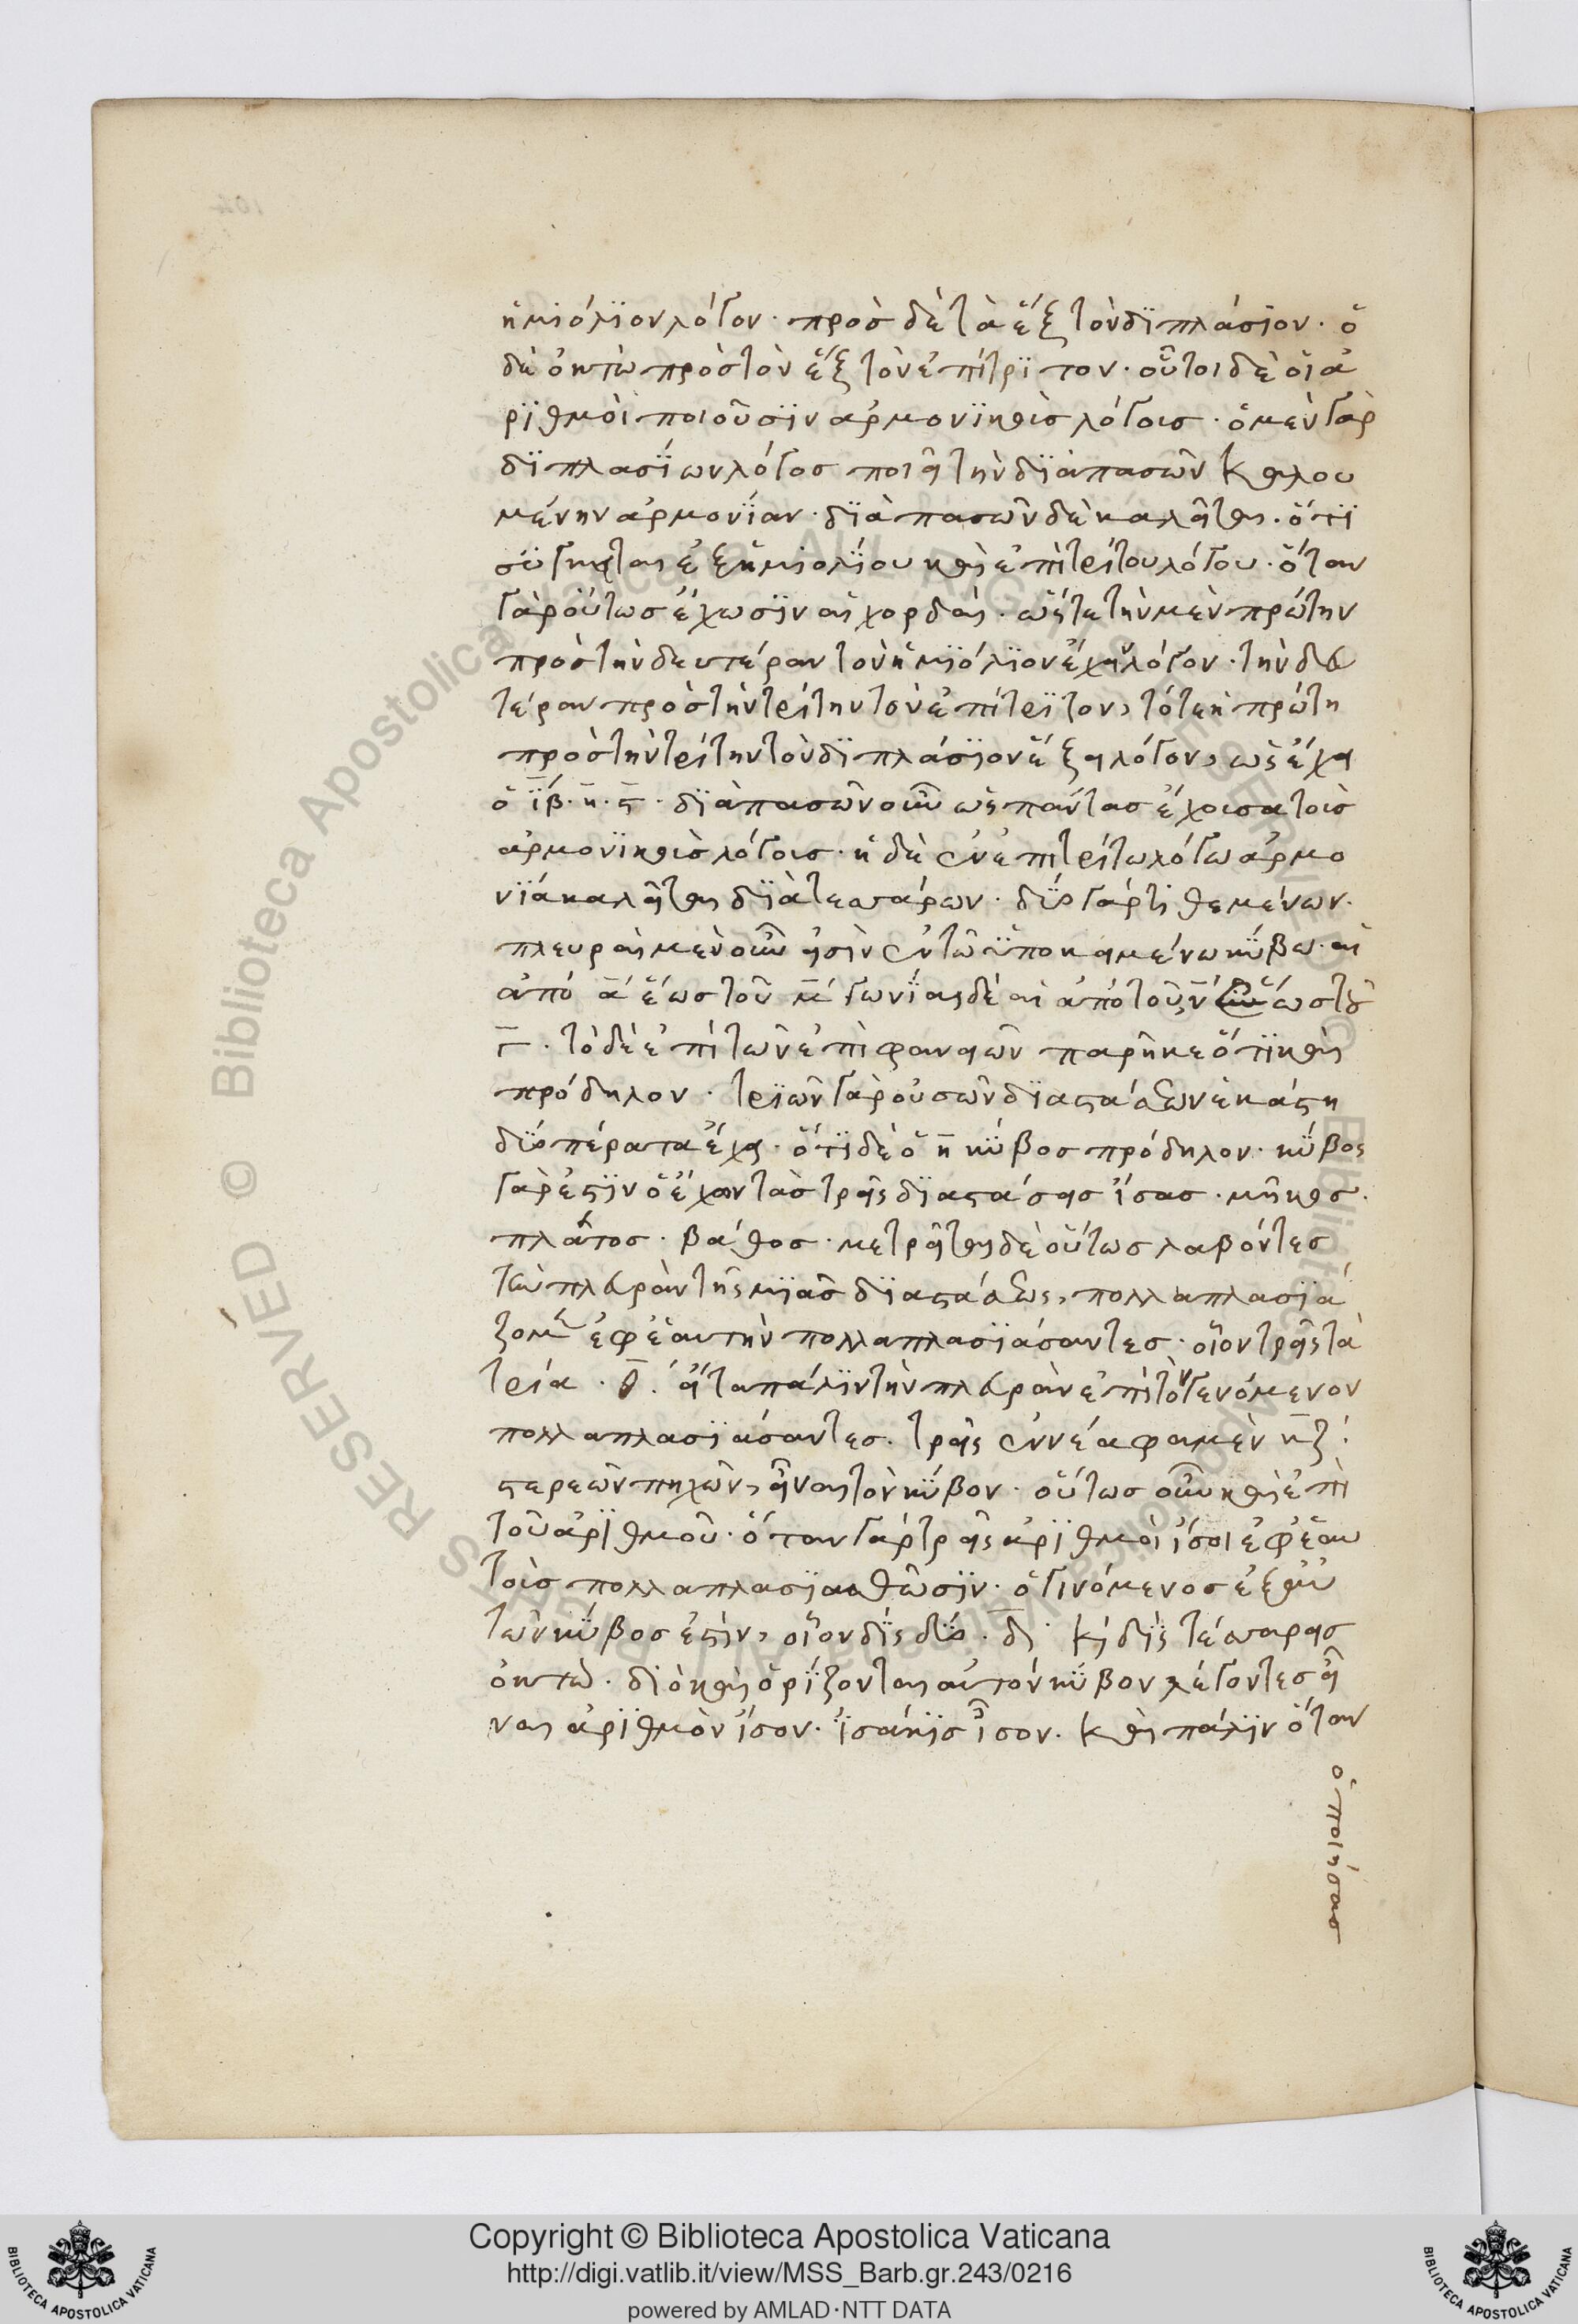 ἡμιόλϊον λόγον· πρὸς δὲ τὰ ἓξ τὸν δϊπλάσϊον· ὁ
δὲ ὀκτὼ πρὸς τὸν ἓξ τὸν ἐπίτρϊτον· οὗτοι δὲ οἱ ἀ
ρϊθμοὶ ποιοῦσϊν ἁρμονϊκοῖς λόγοις· ὁ μὲν γὰρ
δϊπλασΐων λόγος ποιεῖ τὴν δϊὰ πασῶν καλου
μένην ἁρμονΐαν· δϊὰ πασῶν δὲ καλεῖται· ὅτϊ
σύγκειται ἐξ ἡμιολΐου καὶ ἐπιτρίτου λόγου· ὅταν
γὰρ οὕτως ἔχωσϊν αἱ χορδαὶ· ὥστε τὴν μὲν πρώτην
πρὸς τὴν δευτέραν τὸν ἡμϊόλϊον ἔχειν λόγον· τὴν δευ
τέραν πρὸς τὴν τρίτην τὸν ἐπίτρϊτον, τότε ἡ πρώτη
πρὸς τὴν τρίτην τὸν δϊπλάσϊον ἕξει λόγον, ὡς ἔχει
ὁ ιβ· η· ς· δϊὰ πασῶν οὖν ὡς πάντας ἔχουσα τοὺς
ἁρμονϊκοὺς λόγους· ἡ δὲ ἐν ἐπιτρίτω λόγω ἁρμο
νΐα καλεῖται δϊὰ τεσσάρων· δύο γὰρ τϊθεμένων·
πλευραὶ μὲν οὖν εἰσὶν ἐν τῶ ὑποκειμένω κύβω· αἱ
ἀπό α ἕως τοῦ μ γωνΐαι δὲ αἱ ἀπὸ τοῦ ν ἕως τοῦ
γ· τὸ δὲ ἐπὶ τῶν ἐπιφανειῶν παρῆκε ὅτϊ καὶ
πρόδηλον· τρϊῶν γὰρ οὐσῶν δϊαστάσεων ἑκάστη
δύο πέρατα ἔχει· ὅτϊ δὲ ὁ η κύβος πρόδηλον· κύβος
γὰρ ἐστϊν ὁ ἔχων τὰς τρεῖς δϊαστάσεις ἴσας· μῆκος·
πλάτος· βάθος· μετρεῖται δὲ οὕτως λαβόντες
τὴν πλευρὰν τῆς μϊᾶς δϊαστάσεως, πολλαπλασϊά
ζομεν ἐφ ἑαυτὴν πολλαπλασϊάσαντες· οἷον τρεῖς τὰ
τρία· θ· εἶτα πάλϊν τὴν πλευρὰν ἐπὶ τὸν γενόμενον
πολλαπλασϊάσαντες· τρεῖς ἐννέα φαμὲν κζ·
στερεῶν πηχῶν, εἶναι τὸν κύβον· οὕτως οὖν καὶ ἐπὶ
τοῦ ἀρϊθμοῦ· ὅταν γὰρ τρεῖς ἀρϊθμοὶ ἴσοι ἐφ ἑαυ
τοὺς πολλαπλασϊασθῶσϊν· ὁ γινόμενος ἐξ αὐ
τῶν κύβος ἐστὶν, οἷον δὶς δύο· δ· καὶ δὶς τέσσαρας
ὀκτὼ· δϊὸ καὶ ὁρΐζονται αὐτὸν κύβον λέγοντες εἶ
ναι ἀρϊθμὸν ἴσον· ἰσάκϊς ἴσον· καὶ πάλϊν ὅταν
ὁ ποιήσας
Copyright © Biblioteca Apostolica Vaticana
http://digi.vatlib.it/view/MSS_Barb.gr.243/0216
powered by AMLAD·NTT DATA